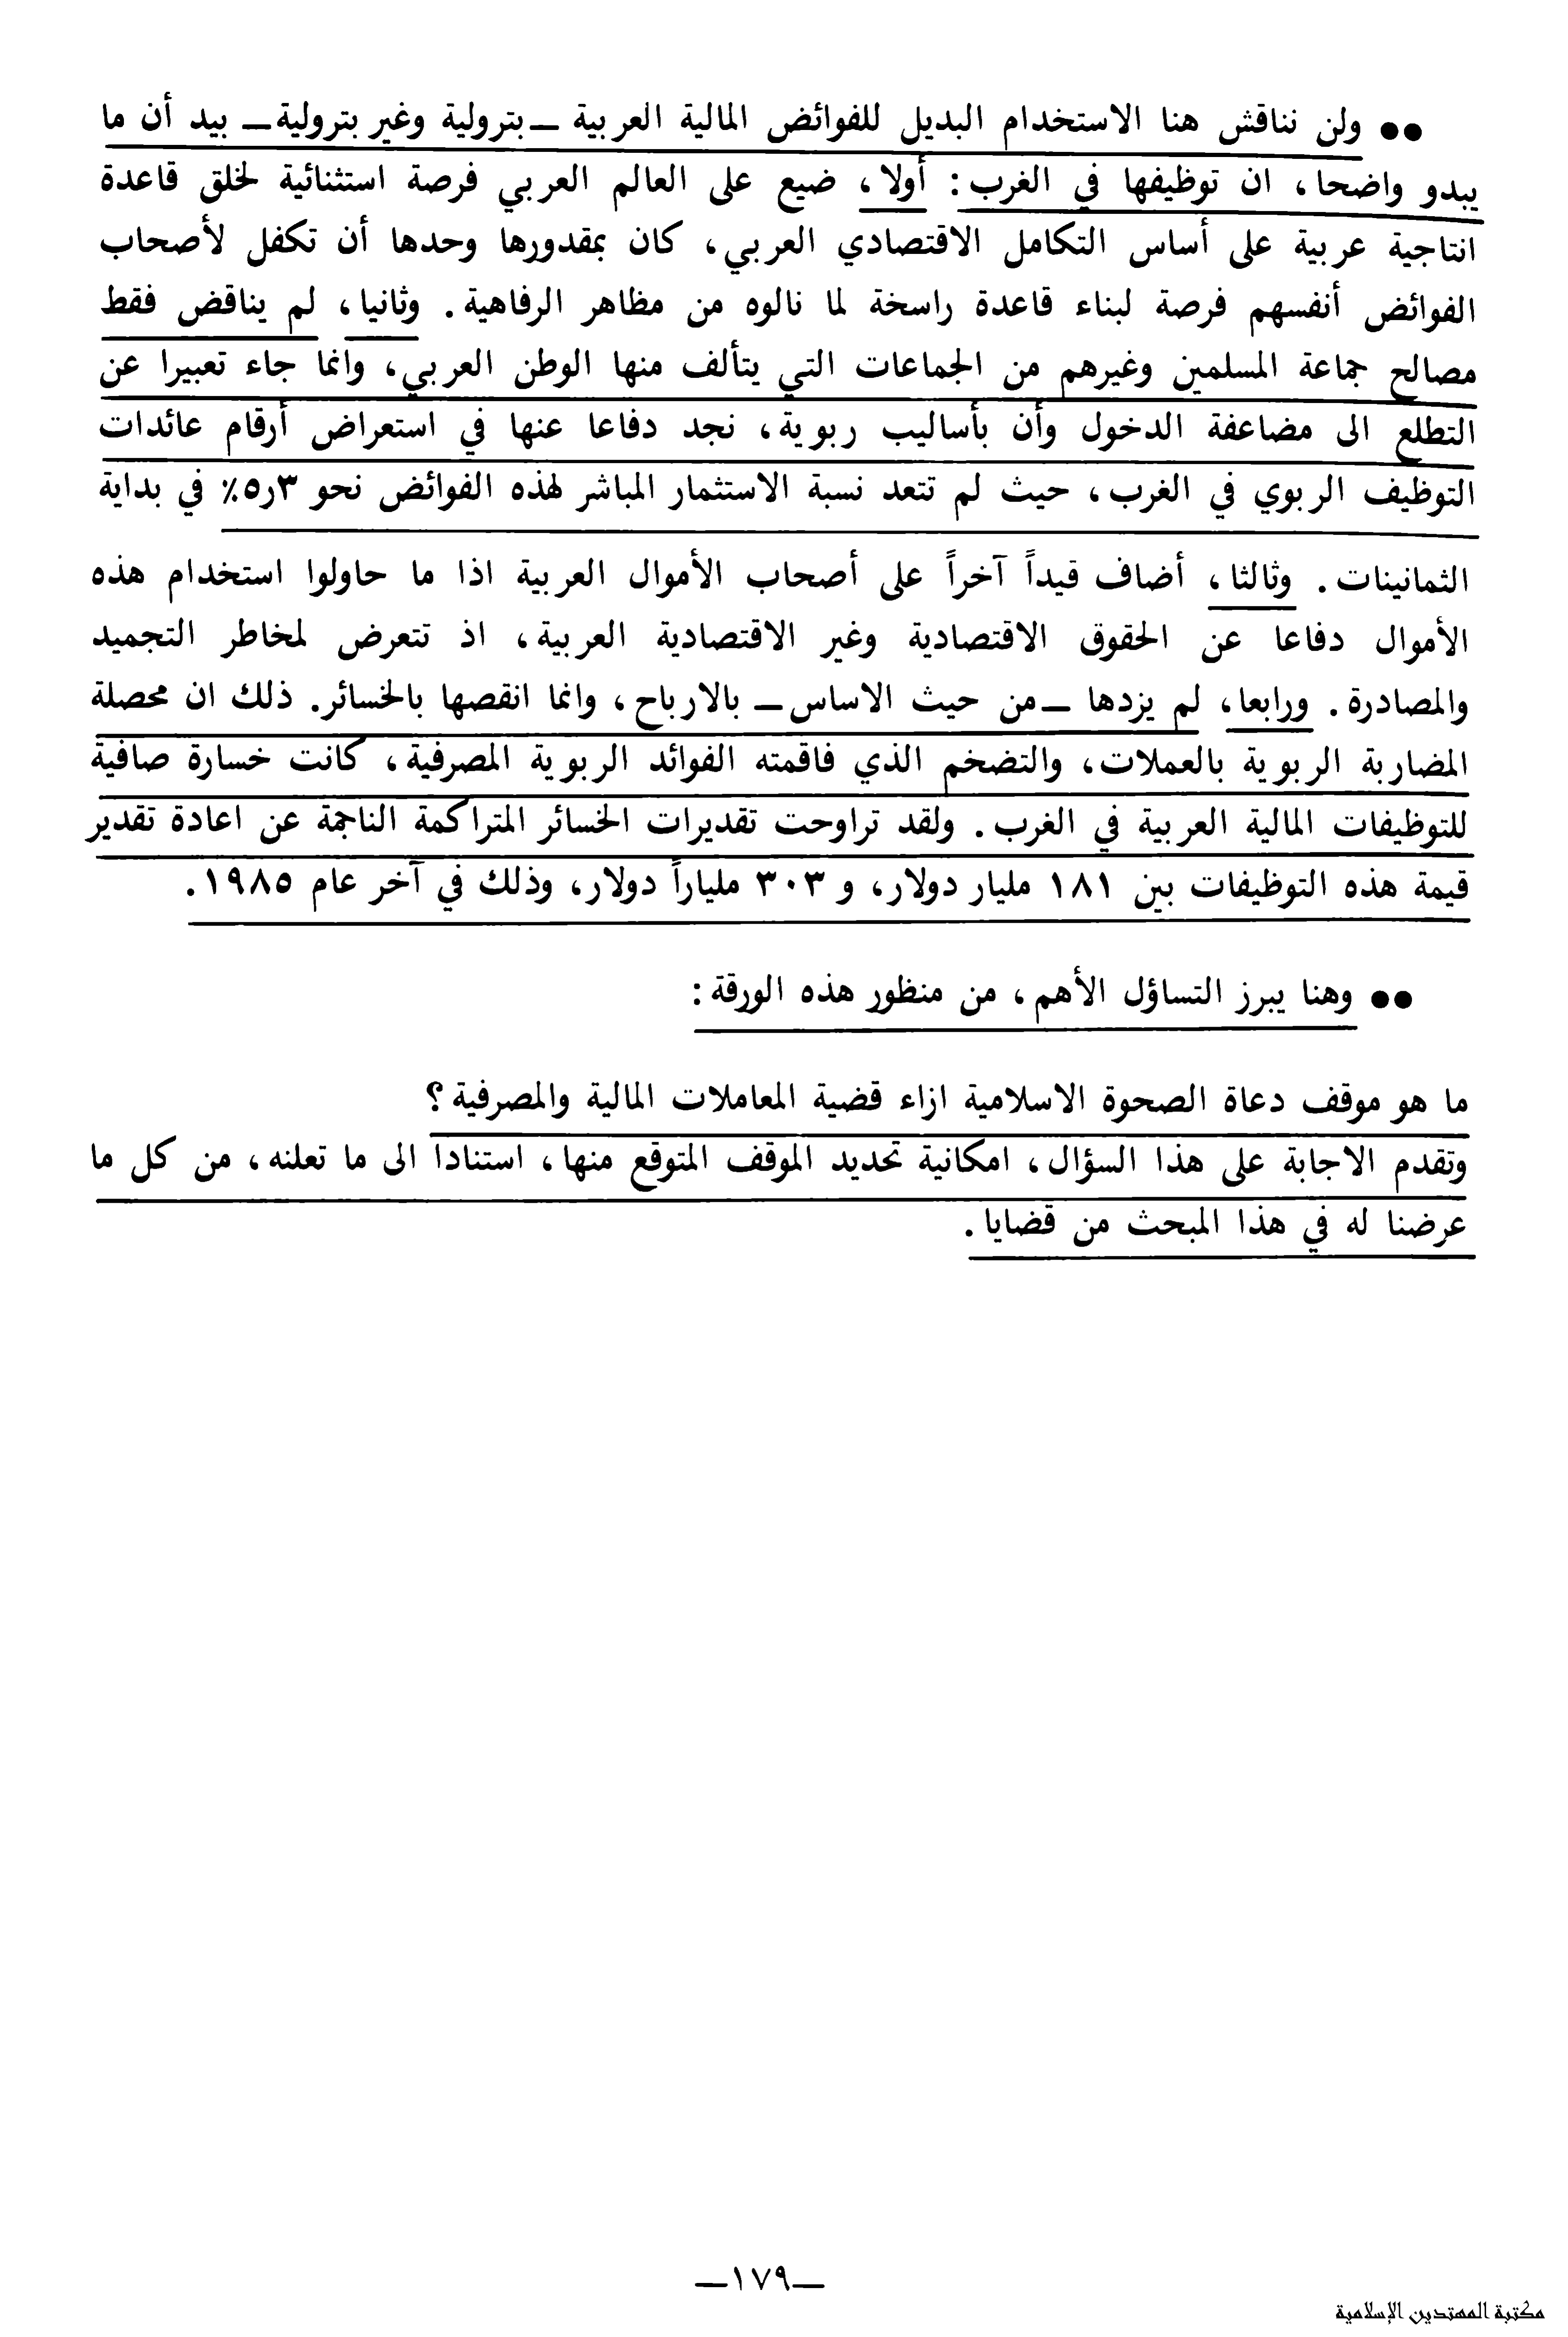 ●● ولن نناقش هنا الاستخدام البديل للفوائض المالية العربية —بترولية وغير بترولية— بيد أن ما
يبدو واضحا، ان توظيفها في الغرب: أولا، ضيع على العالم العربي فرصة استثنائية لخلق قاعدة
انتاجية عربية على أساس التكامل الاقتصادي العربي، كان بمقدورها وحدها أن تكفل لأصحاب
الفوائض أنفسهم فرصة لبناء قاعدة راسخة لما نالوه من مظاهر الرفاهية. وثانيا، لم يناقض فقط
مصالح جماعة المسلمين وغيرهم من الجماعات التي يتألف منها الوطن العربي، وانما جاء تعبيرا عن
التطلع الى مضاعفة الدخول وأن بأساليب ربوية، نجد دفاعا عنها في استعراض أرقام عائدات
التوظيف الربوي في الغرب، حيث لم تتعد نسبة الاستثمار المباشر لهذه الفوائض نحو ٣ر٥٪ في بداية
الثمانينات. وثالثا، أضاف قيداً آخراً على أصحاب الأموال العربية اذا ما حاولوا استخدام هذه
الأموال دفاعا عن الحقوق الاقتصادية وغير الاقتصادية العربية، اذ تتعرض لمخاطر التجميد
والمصادرة. ورابعا، لم يزدها —من حيث الاساس— بالارباح، وانما انقصها بالخسائر. ذلك ان محصلة
المضاربة الربوية بالعملات، والتضخم الذي فاقمته الفوائد الربوية المصرفية، كانت خسارة صافية
للتوظيفات المالية العربية في الغرب. ولقد تراوحت تقديرات الخسائر المتراكمة الناجمة عن اعادة تقدير
قيمة هذه التوظيفات بين ١٨١ مليار دولار، و ٣٠٣ ملياراً دولار، وذلك في آخر عام ١٩٨٥.
●● وهنا يبرز التساؤل الأهم، من منظور هذه الورقة:
ما هو موقف دعاة الصحوة الاسلامية ازاء قضية المعاملات المالية والمصرفية؟
وتقدم الاجابة على هذا السؤال، امكانية تحديد الموقف المتوقع منها، استنادا الى ما تعلنه، من كل ما
عرضنا له في هذا المبحث من قضايا.
—١٧٩—
مكتبة المهتدين الإسلامية